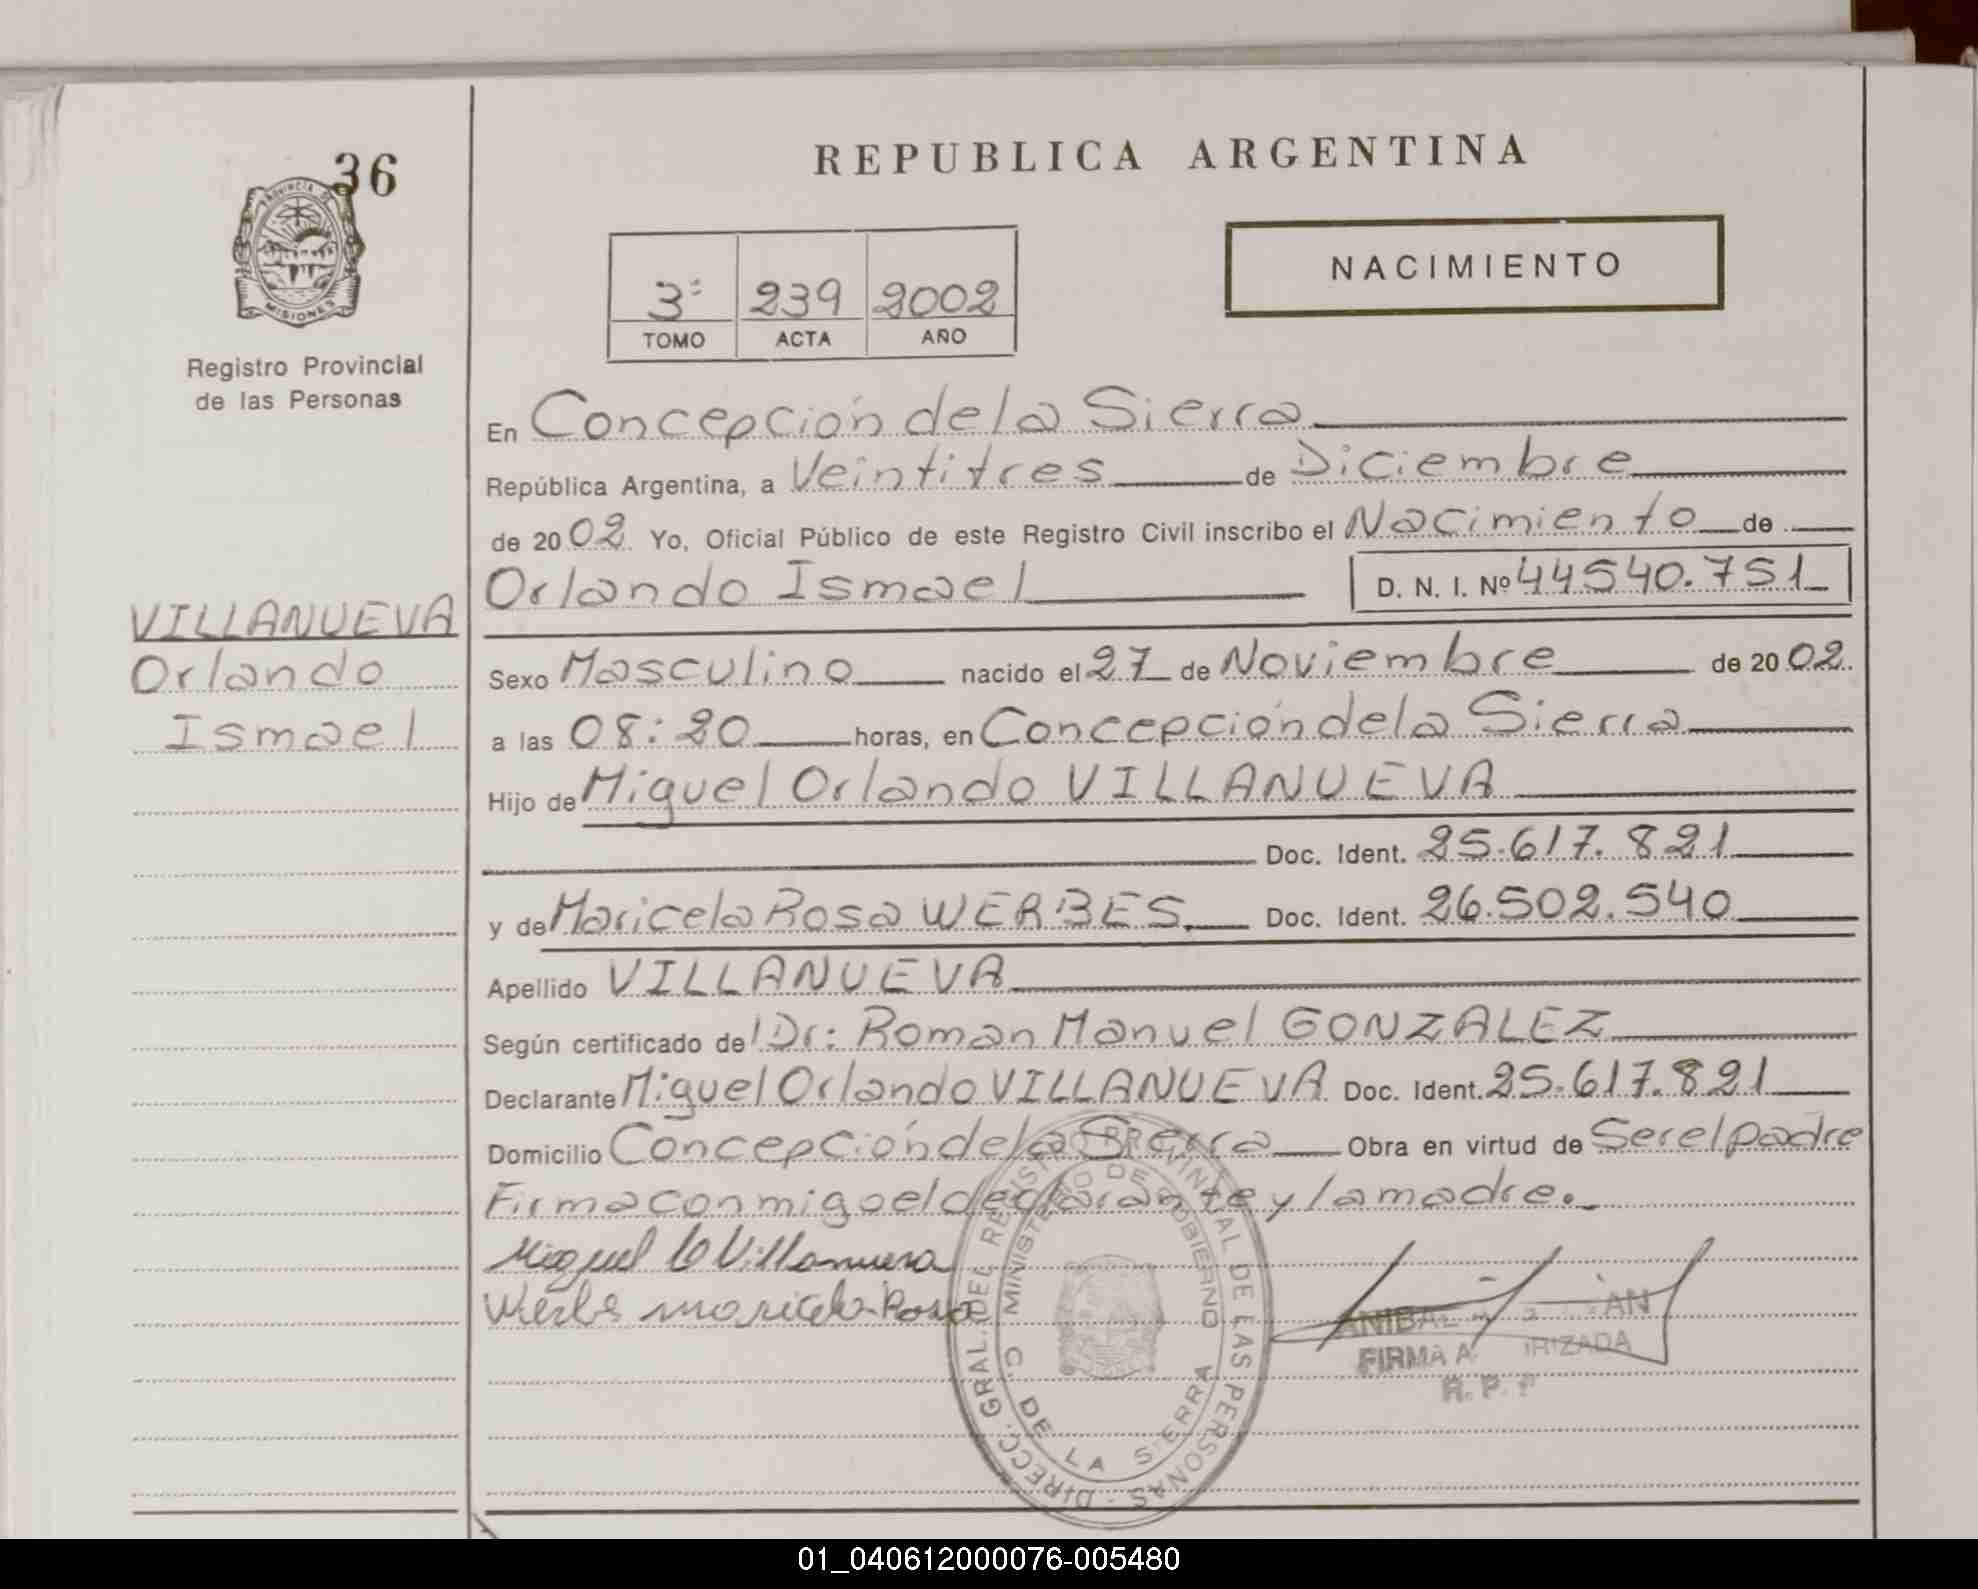 36
PROVINCIA DE
MISIONES
Registro Provincial
de las Personas
VILLANUEVA
Orlando
Ismael
REPUBLICA ARGENTINA
3º 239 2002
TOMO ACTA AÑO
NACIMIENTO
En Concepción de la Sierra
República Argentina, a Veintitres de Diciembre
de 2002 Yo, Oficial Público de este Registro Civil inscribo el Nacimiento de
Orlando Ismael D. N. I. Nº 44540.751
Sexo Masculino nacido el 27 de Noviembre de 2002
a las 08:20 horas, en Concepción de la Sierra
Hijo de Miguel Orlando VILLANUEVA
Doc. Ident. 25.617.821
y de Maricela Rosa WERBES. Doc. Ident. 26.502.540
Apellido VILLANUEVA
Según certificado de Dr: Roman Manuel GONZALEZ
Declarante Miguel Orlando VILLANUEVA Doc. Ident. 25.617.821
Domicilio Concepción de la Sierra Obra en virtud de Ser el padre
Firma conmigo el declarante y la madre.
Miguel O Villanueva
Werbes maricela Rosa
DIRECC. GRAL. DEL REGISTRO PROVINCIAL DE LAS PERSONAS
MINISTERIO DE GOBIERNO
C. DE LA SIERRA
ANIBAL
FIRMA
R. P. P
01_040612000076-005480